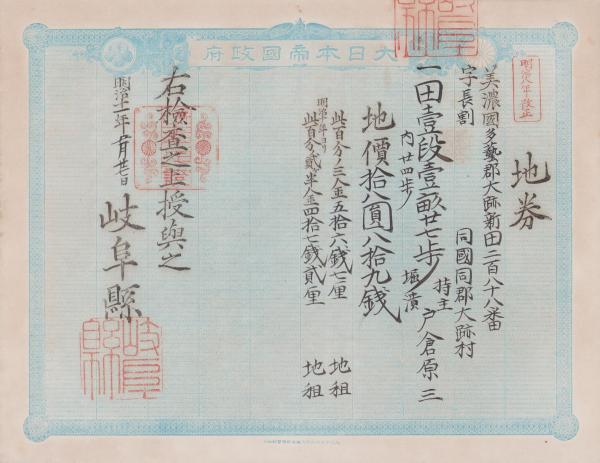 大日本帝國政府
明治八年改正
地券
美濃國多藝郡大跡新田二百八十八番
字長割
同國同郡大跡村
一田壹段壹畝廿七歩
持主 戸倉原三
内廿四歩 堀潰
地價拾八圓八拾九銭
此百分ノ三金五拾六銭七厘 地租
明治十年ヨリ
此百分貳半金四拾七銭貳厘 地租
右検査之上授與之
明治十一年 月廿七日
岐阜縣